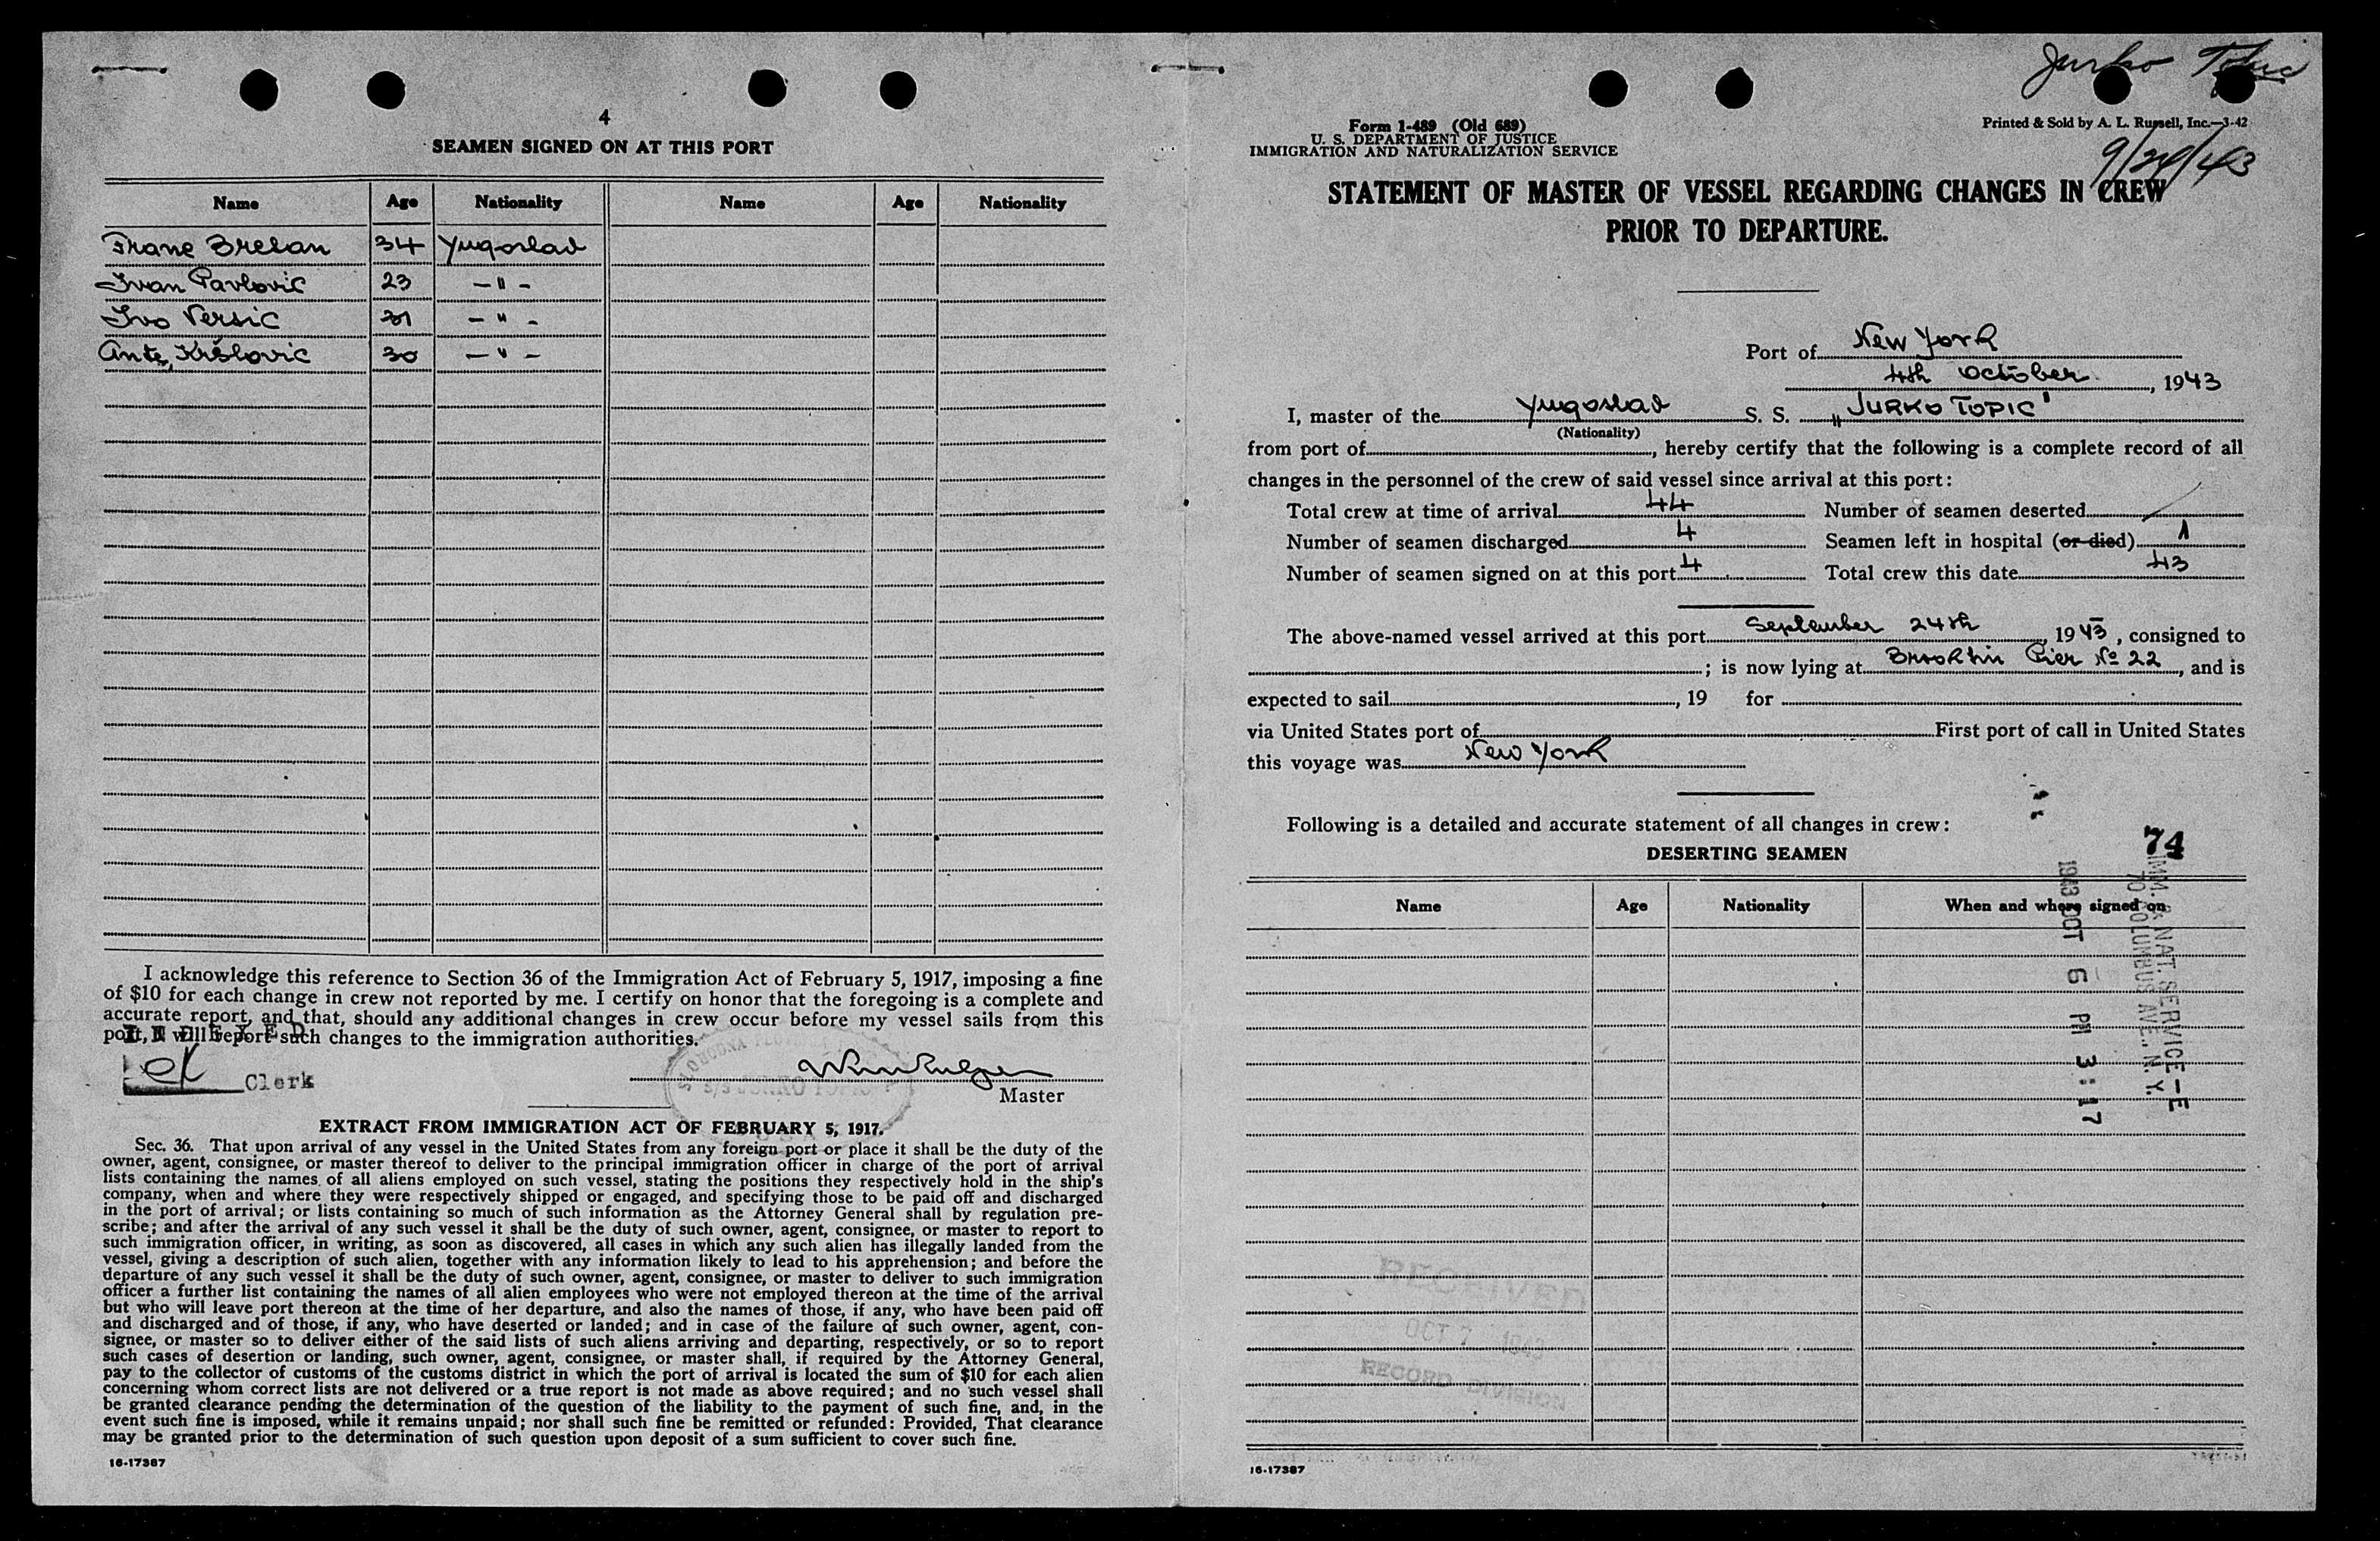 4
SEAMEN SIGNED ON AT THIS PORT
Name Age Nationality Name Age Nationality
Frane Bresan 34 Yugoslav
Ivan Pavlovic 23 — " -
Ivo Versic 31 — " -
Ante Kršlovic 30 — " -
I acknowledge this reference to Section 36 of the Immigration Act of February 5, 1917, imposing a fine
of $10 for each change in crew not reported by me. I certify on honor that the foregoing is a complete and
accurate report, and that, should any additional changes in crew occur before my vessel sails from this
port, I will report such changes to the immigration authorities.
INDEXED
Clerk
Master
EXTRACT FROM IMMIGRATION ACT OF FEBRUARY 5, 1917.
Sec. 36. That upon arrival of any vessel in the United States from any foreign port or place it shall be the duty of the
owner, agent, consignee, or master thereof to deliver to the principal immigration officer in charge of the port of arrival
lists containing the names of all aliens employed on such vessel, stating the positions they respectively hold in the ship's
company, when and where they were respectively shipped or engaged, and specifying those to be paid off and discharged
in the port of arrival; or lists containing so much of such information as the Attorney General shall by regulation pre-
scribe; and after the arrival of any such vessel it shall be the duty of such owner, agent, consignee, or master to report to
such immigration officer, in writing, as soon as discovered, all cases in which any such alien has illegally landed from the
vessel, giving a description of such alien, together with any information likely to lead to his apprehension; and before the
departure of any such vessel it shall be the duty of such owner, agent, consignee, or master to deliver to such immigration
officer a further list containing the names of all alien employees who were not employed thereon at the time of the arrival
but who will leave port thereon at the time of her departure, and also the names of those, if any, who have been paid off
and discharged and of those, if any, who have deserted or landed; and in case of the failure of such owner, agent, con-
signee, or master so to deliver either of the said lists of such aliens arriving and departing, respectively, or so to report
such cases of desertion or landing, such owner, agent, consignee, or master shall, if required by the Attorney General,
pay to the collector of customs of the customs district in which the port of arrival is located the sum of $10 for each alien
concerning whom correct lists are not delivered or a true report is not made as above required; and no such vessel shall
be granted clearance pending the determination of the question of the liability to the payment of such fine, and, in the
event such fine is imposed, while it remains unpaid; nor shall such fine be remitted or refunded: Provided, That clearance
may be granted prior to the determination of such question upon deposit of a sum sufficient to cover such fine.
16-17387
Jurko Topic
Form I-489 (Old 689)
U. S. DEPARTMENT OF JUSTICE
IMMIGRATION AND NATURALIZATION SERVICE
Printed & Sold by A. L. Russell, Inc.—3-42
9/24/43
STATEMENT OF MASTER OF VESSEL REGARDING CHANGES IN CREW
PRIOR TO DEPARTURE.
Port of New York
4th October, 1943
I, master of the Yugoslav S. S. "JURKO TOPIC"
(Nationality)
from port of, hereby certify that the following is a complete record of all
changes in the personnel of the crew of said vessel since arrival at this port:
Total crew at time of arrival 44 Number of seamen deserted /
Number of seamen discharged 4 Seamen left in hospital (or died) 1
Number of seamen signed on at this port 4 Total crew this date 43
The above-named vessel arrived at this port September 24th, 1943, consigned to
; is now lying at Brooklin Pier No 22, and is
expected to sail, 19 for
via United States port of First port of call in United States
this voyage was New York
Following is a detailed and accurate statement of all changes in crew:
DESERTING SEAMEN
74
Name Age Nationality When and where signed on
IMM. & NAT. SERVICE—E
70 COLUMBUS AVE., N. Y.
1943 OCT 6 PM 3:17
RECEIVED
OCT 7 1943
RECORD DIVISION
16-17387